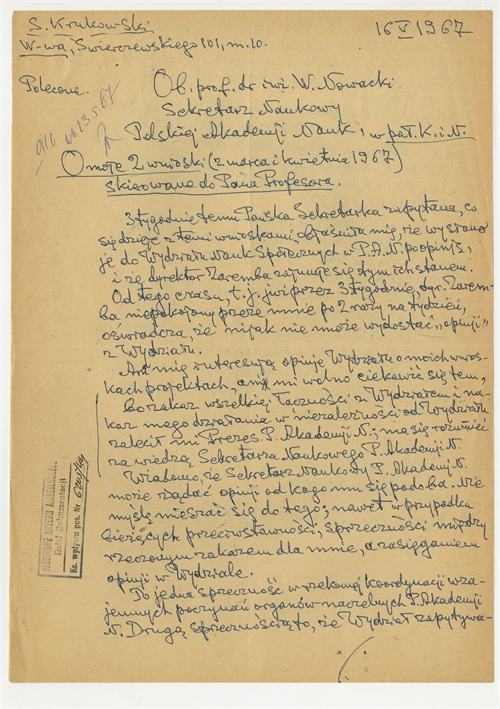 S. Krukowski
W-wa, Świerczewskiego 101, m. 10.
16 V 1967
Polecone.
9116 23.5.67
Ob. prof. dr inż. W. Nowacki
Sekretarz Naukowy
Polskiej Akademji Nauk, w pał. K. i N.
O moje 2 wnioski (z marca i kwietnia 1967)
skierowane do Pana Profesora.
3 tygodnie temu Pańska Sekretarka zapytana, co
się dzieje z temi wnioskami, objaśniła mię, że wysłano
je do Wydziału Nauk Społecznych P.A.N. po opinję,
i że dyrektor Zaremba zajmuje się tym ich stanem.
Od tego czasu, t.j. już przez 3 tygodnie, dyr. Zarem-
ba niepokojony przeze mnie po 2 razy na tydzień,
oświadcza, że nijak nie może wydostać "opinji"
z Wydziału.
Ani mię interesują opinje Wydziału o moich wnios-
kach projektach, ani mi wolno ciekawić się tem,
bo zakaz wszelkiej łączności z Wydziałem i na-
kaz mego działania w niezależności od Wydziału
zalecił mi Prezes P. Akademji N.; ma się rozumieć
za wiedzą Sekretarza Naukowego P. Akademji N.
Wiadomo, że Sekretarz Naukowy P. Akademji N.
może żądać opinji od kogo mu się podoba. Nie
myślę mieszać się do tego; nawet w przypadku
bieżących przeciwstawności, sprzeczności między
rzeczonym zakazem dla mnie, a zasięganiem
opinji w Wydziale.
To jedna sprzeczność w rzekomej koordynacji wza-
jemnych poczynań organów naczelnych P. Akademji
N. Drugą sprzecznością to, że Wydział zapytywa-
PAŃSTWOWE MUZEUM ARCHEOLOGICZNE
Dział Dokumentacji
Ks. wpływu poz. Nr